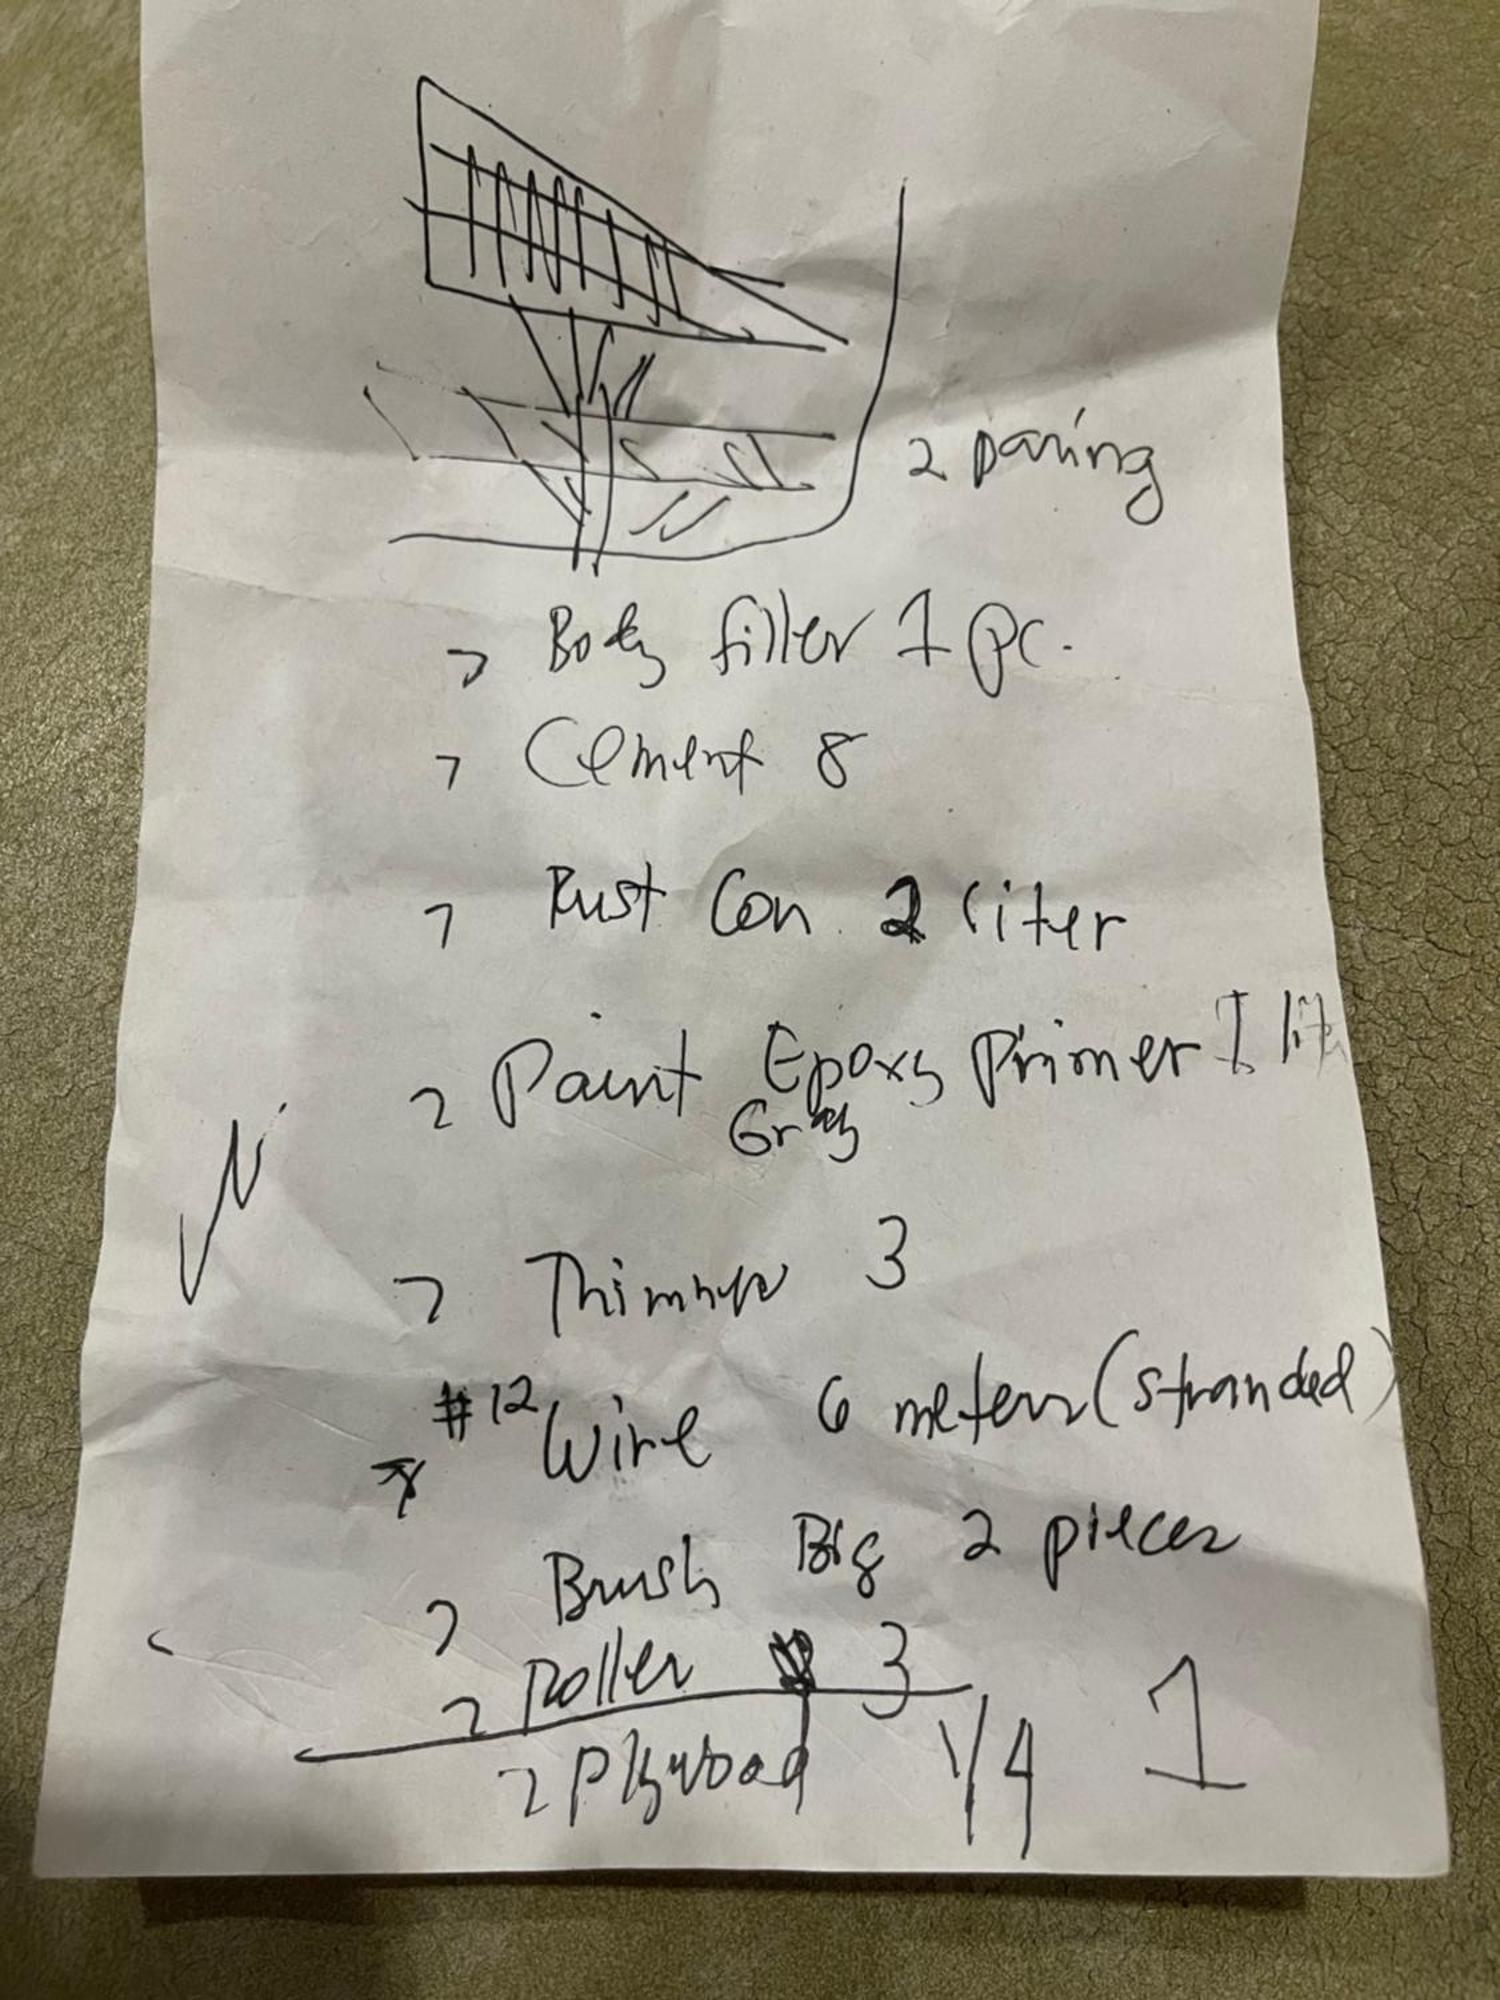 2 paning
Body filler 1 pc.
Cement 8
Rust Con 2 liter
Paint Epoxy Primer 1 lit
Gray
Thinner 3
#12 Wire 6 meters (stranded)
Brush Big 2 pieces
Roller 3
Plywood 1/4 1